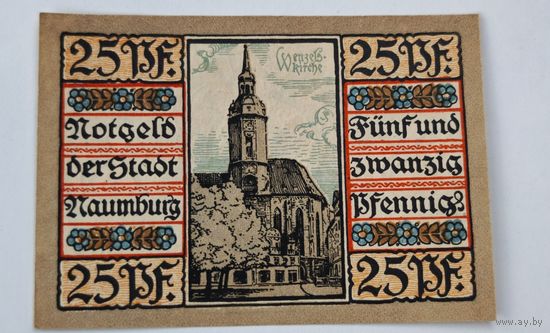 25 Pf.
25 Pf.
Wenzels-
kirche
Notgeld
der Stadt
Naumburg
Fünfund
zwanzig
Pfennig
25 Pf.
25 Pf.
www.ay.by